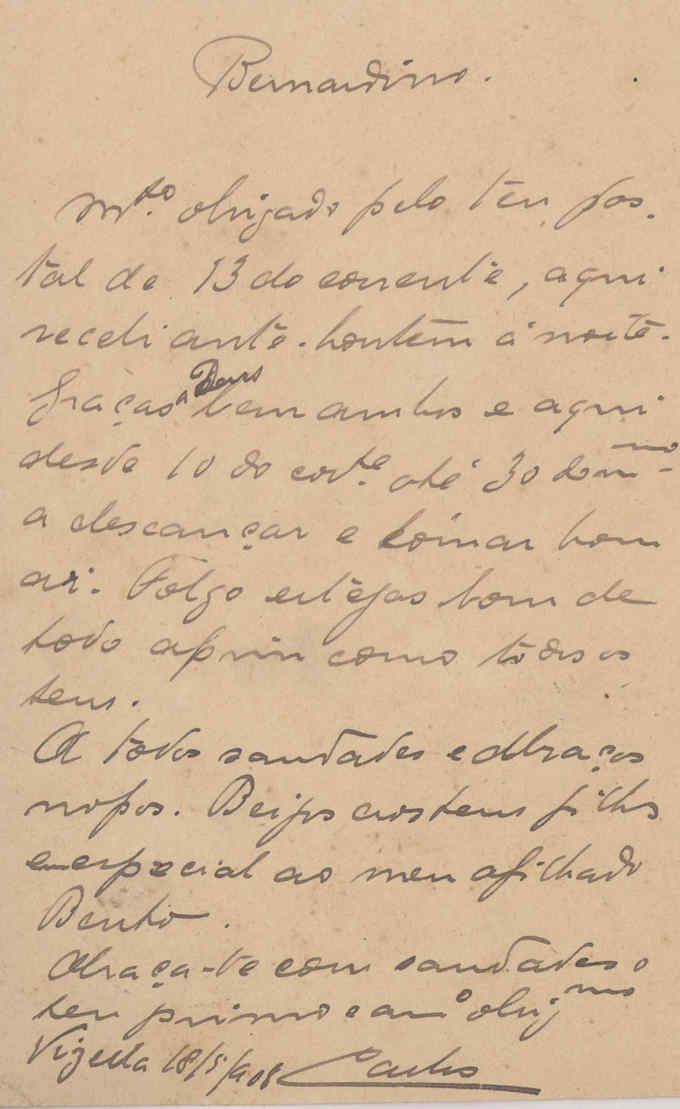 Bernardino.
Mto. obrigado pelo teu pos-
tal de 13 do corrente, aqui
recebi ante-hontem á noite.
Graças a Deus bem ambos e aqui
desde 10 do corte. até 30
a descançar e tomar bom
ar. Folgo estejas bom de
todo assim como todos os
teus.
A todos saudades e abraços
nossos. Beijos aos teus filhos
em especial ao meu afilhado
Bento.
Abraça-te com saudades o
teu primo e amo obrigmo
Vizella 18/5/908 Carlos